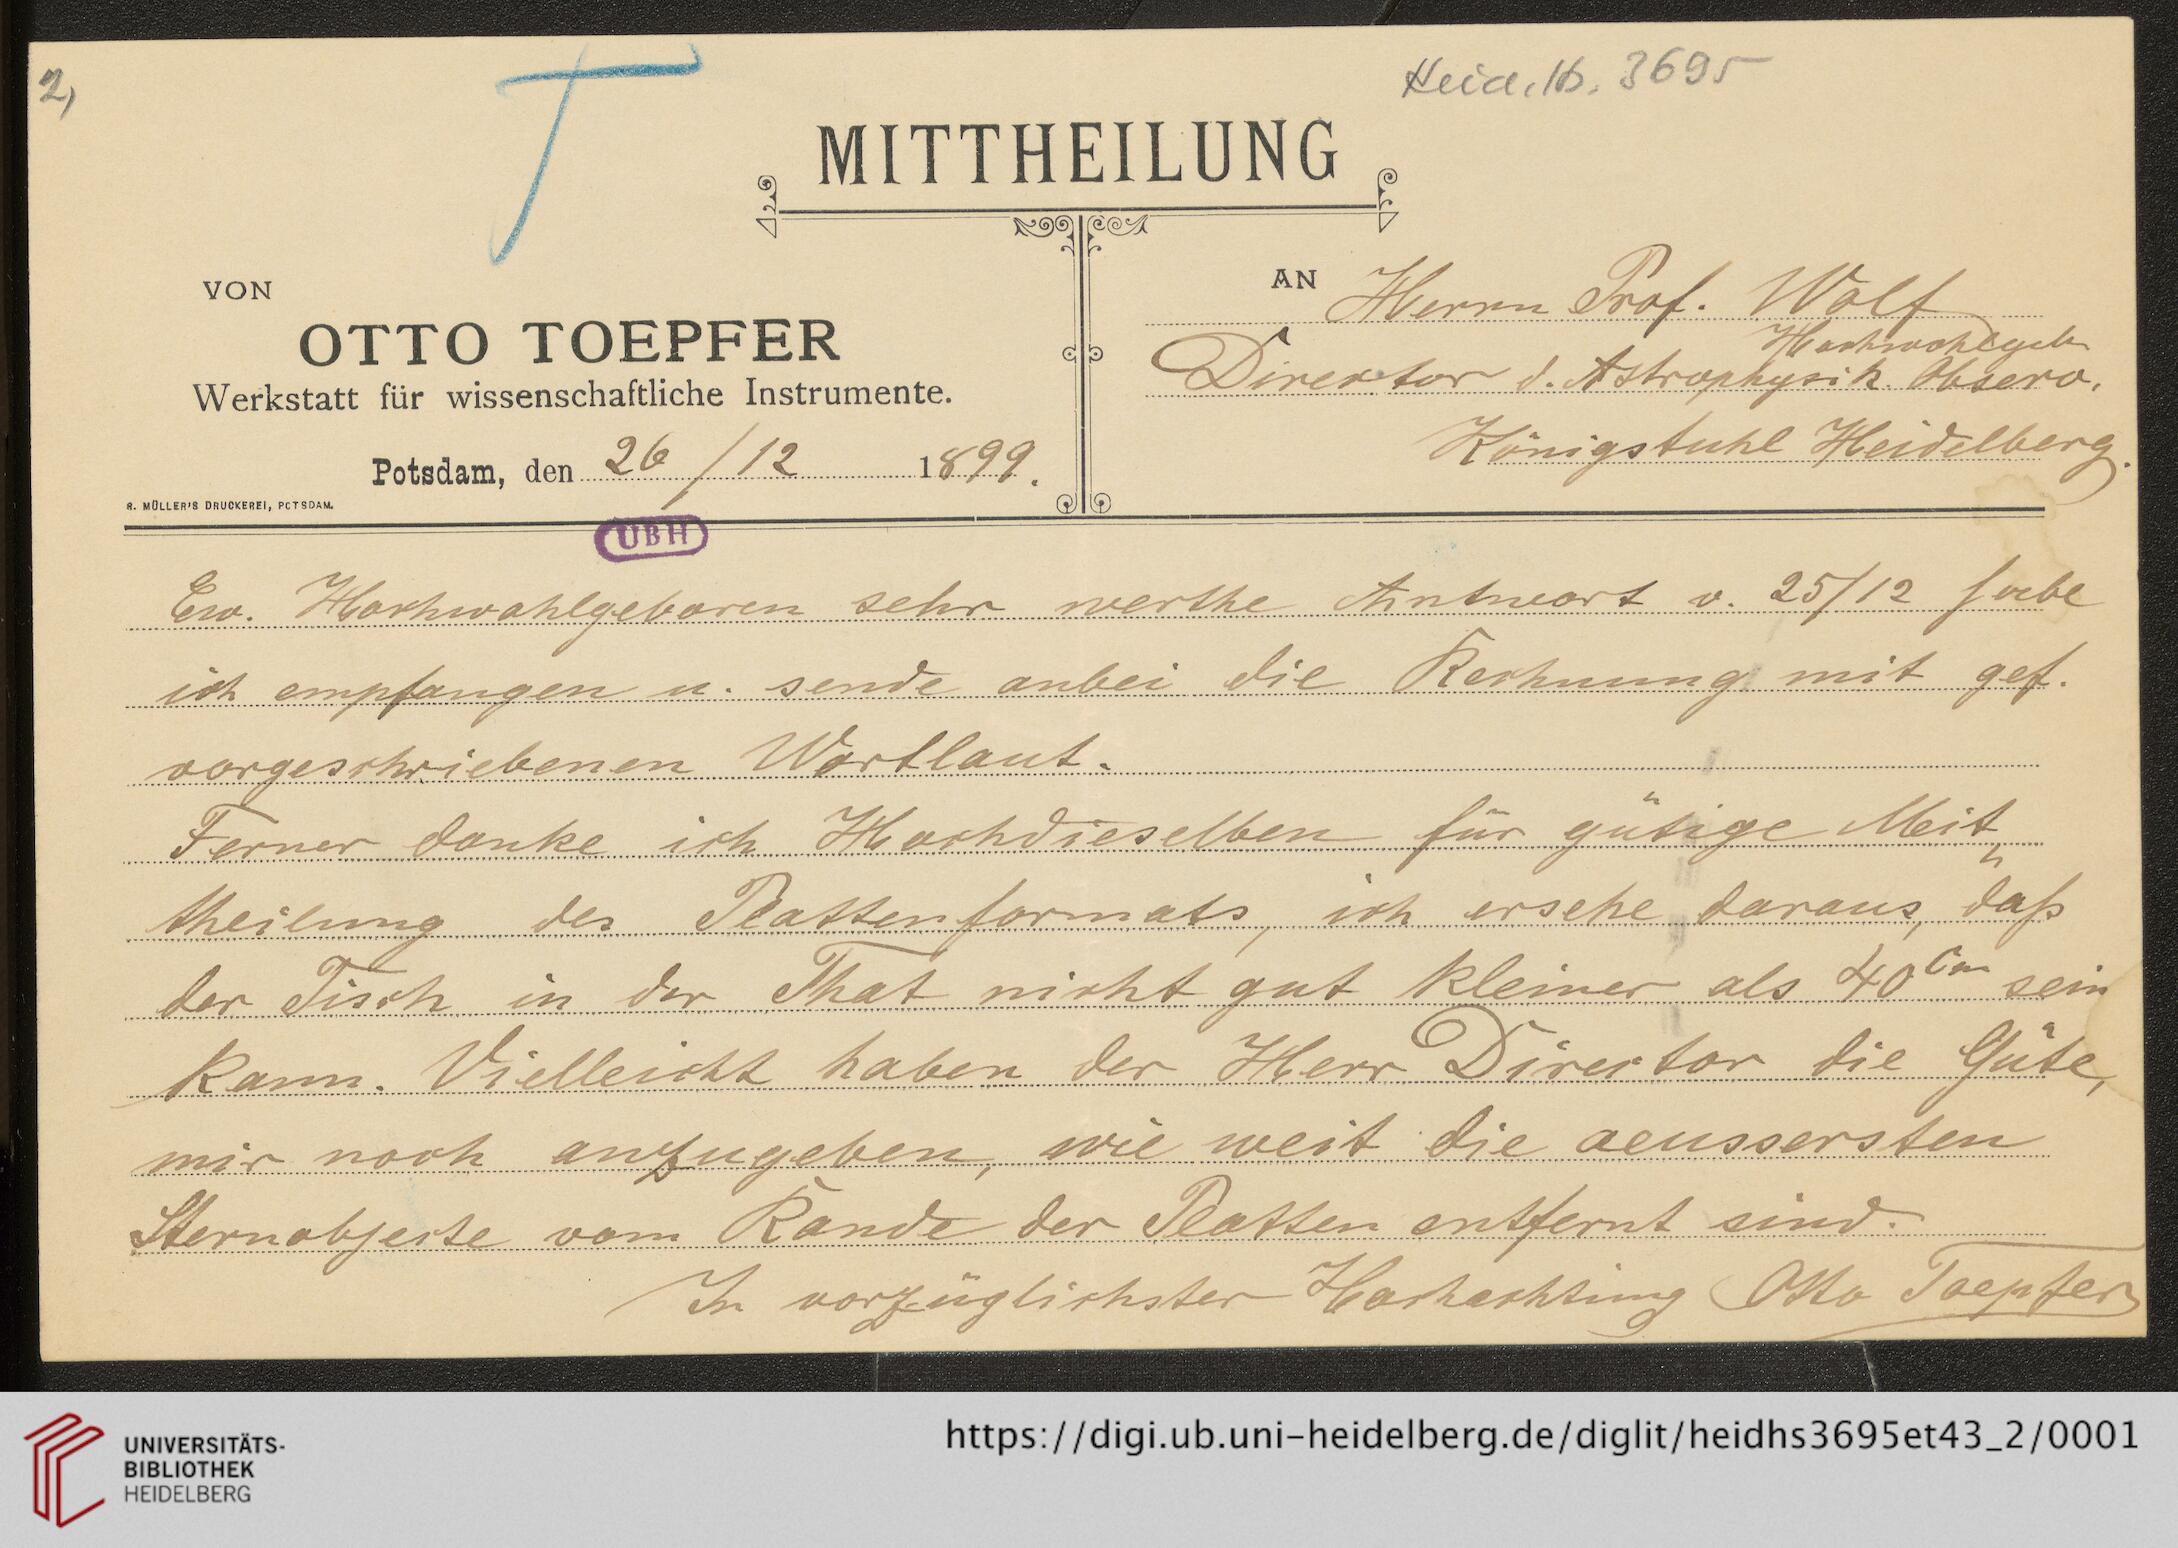 2,
T
Heid. Hs. 3695
MITTHEILUNG
VON
OTTO TOEPFER
Werkstatt für wissenschaftliche Instrumente.
Potsdam, den 26/12 1899.
R. MÜLLER'S DRUCKEREI, POTSDAM.
AN Herrn Prof. Wolf
Hochwohlgeb.
Director d. Astrophysik. Observ.
Königstuhl Heidelberg.
UBH
Ew. Hochwohlgeboren sehr werthe Antwort v. 25/12 habe
ich empfangen u. sende anbei die Rechnung mit gef.
vorgeschriebenen Wortlaut.
Ferner danke ich Hochdieselben für gütige Meit
theilung des Plattenformats, ich ersehe daraus, daß
der Tisch in der That nicht gut kleiner als 40 cm sein
kann. Vielleicht haben der Herr Director die Güte,
mir noch anzugeben, wie weit die aeussersten
Sternobjecte vom Rande der Platten entfernt sind.
In vorzüglichster Hochachtung Otto Toepfer
UNIVERSITÄTS-
BIBLIOTHEK
HEIDELBERG
https://digi.ub.uni-heidelberg.de/diglit/heidhs3695et43_2/0001